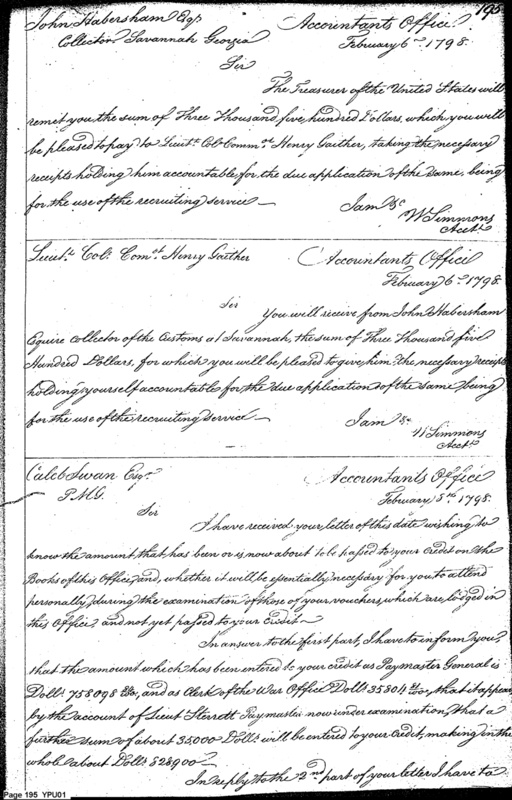 195
John Habersham Esqr. Accountants Office
Collector Savannah Georgia February 6th 1798.
Sir
The Treasurer of the United States will
remet you the sum of Three Thousand five hundred Dollars, which you will
be pleased to pay to Lieutt. Colo. Commt. Henry Gaither, taking the necessary
receipts holding him accountable for the due application of the same, being
for the use of the recruiting service —
I am &c
W Simmons
Acctt.
Lieutt. Colo. Comt. Henry Gaither Accountants Office
February 6th 1798.
Sir
You will receive from John Habersham
Esquire collector of the Customs at Savannah, the sum of Three Thousand five
Hundred Dollars, for which you will be pleased to give him the necessary receipts
holding yourself accountable for the due application of the same being
for the use of the recruiting service —
I am &c
W Simmons
Acctt.
Caleb Swan Esqr. Accountants Office
P.M.G. February 8th 1798.
Sir
I have received your letter of this date wishing to
know the amount that has been or is now about to be passed to your Credit on the
Books of this Office, and, whether it will be essentially necessary for you to attend
personally during the examination of those of your vouchers, which are lodged in
this Office? and not yet passed to your Credit —
In answer to the first part, I have to inform you,
that the amount which has been entered to your credit as Paymaster General is
Dolls. 758098 and as Clerk of the War Office Dolls. 35804 that it appears
by the account of Lieut Sterrett Paymaster now under examination, that a
further sum of about 35000 Dolls. will be entered to your Credit, making in the
whole about Dolls. 828900 —
In reply to the 2nd part of your letter I have to
Page 195 YPU01